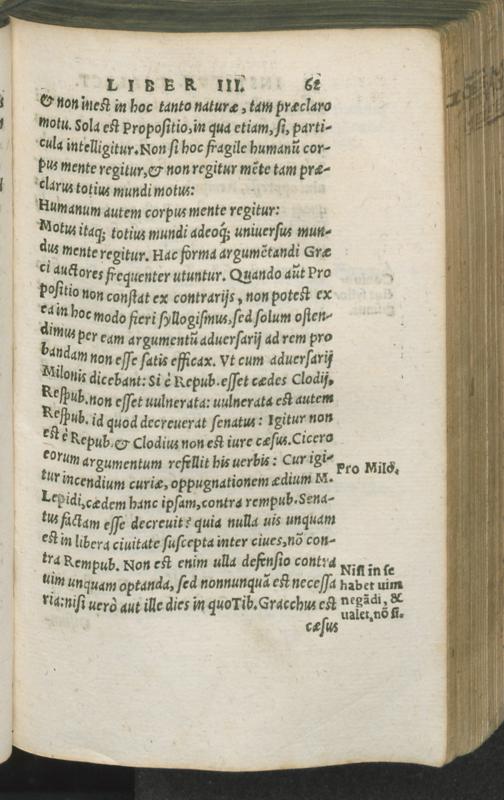 LIBER III. 62
& non inest in hoc tanto naturæ, tam præclaro
motu. Sola est Propositio, in qua etiam, si, parti-
cula intelligitur. Non si hoc fragile humanū cor-
pus mente regitur, & non regitur mēte tam præ-
clarus totius mundi motus:
Humanum autem corpus mente regitur:
Motus itaq; totius mundi adeoq́; uniuersus mun-
dus mente regitur. Hac forma argumētandi Græ
ci auctores frequenter utuntur. Quando aūt Pro
positio non constat ex contrarijs, non potest ex
ea in hoc modo fieri syllogismus, sed solum osten-
dimus per eam argumentū aduersarij ad rem pro
bandam non esse satis efficax. Vt cum aduersarij
Milonis dicebant: Si è Repub. esset cædes Clodij,
Respub. non esset uulnerata: uulnerata est autem
Respub. id quod decreuerat senatus: Igitur non
est è Repub. & Clodius non est iure cæsus. Cicero
eorum argumentum refellit his uerbis: Cur igi-
tur incendium curiæ, oppugnationem ædium M.
Pro Milō.
Lepidi, cædem hanc ipsam, contra rempub. Sena-
tus factam esse decreuit? quia nulla uis unquam
est in libera ciuitate suscepta inter ciues, nō con-
tra Rempub. Non est enim ulla defensio contra
uim unquam optanda, sed nonnunquā est necessa
ria: nisi uerò aut ille dies in quo Tib. Gracchus est
Nisi in se
habet uim
negādi, &
ualet, nō si.
cæsus